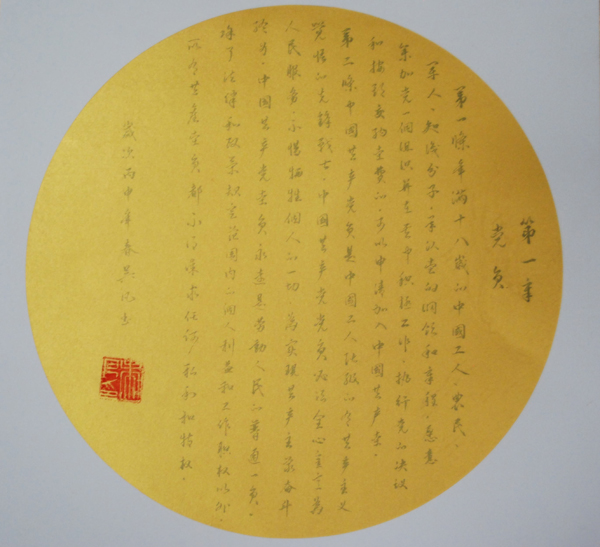 第一章
党员
第一條年满十八歲的中國工人、农民、
军人、知识分子、承认党的纲领和章程,愿意
参加党一個组织并在其中积极工作、执行党的决议
和按期交纳党费的,可以申请加入中國共产党。
第二條中國共产党员是中國工人阶级的有共产主义
觉悟的先锋战士。中國共产党党员必须全心全意为
人民服务,不惜牺牲個人的一切,为实现共产主義奋斗
终身。中國共产党党员永遠是劳动人民的普通一员。
除了法律和政策规定范围内的個人利益和工作职权以外,
所有共產党员都不得谋求任何私利和特权。
歲次丙申年春